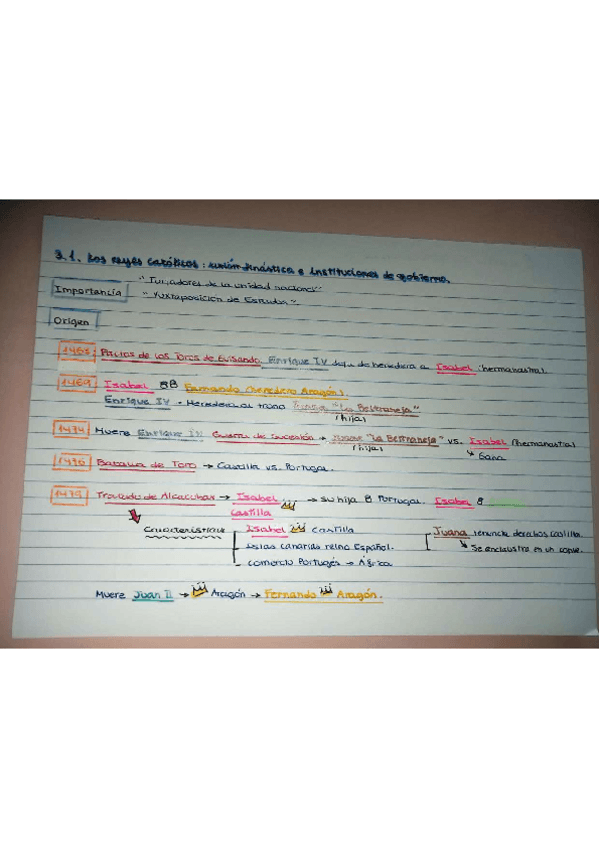 3.1. Los reyes católicos: unión dinástica e instituciones de gobierno.
Importancia
"Forjadores de la unidad nacional"
"Yuxtaposición de Estados"
Origen
1468 Pactos de los Toros de Guisando. Enrique IV deja de heredera a Isabel (hermanastra)
1469 Isabel Fernando (heredero Aragón).
Enrique IV Heredera al trono Juana "La Beltraneja"
(hija)
1474 Muere Enrique IV: Guerra de Sucesión → Juana "La Beltraneja" vs. Isabel (hermanastra)
(hija)
Gana
1476 Batalla de Toro → Castilla vs. Portugal.
1479 Tratado de Alcaçobas → Isabel → su hija Portugal. Isabel
Castilla
Características Isabel Castilla
Islas canarias reino Español.
comercio Portugés → África
Juana renuncia derechos Castilla.
Se enclaustra en un
Muere Juan II → Aragón → Fernando Aragón.